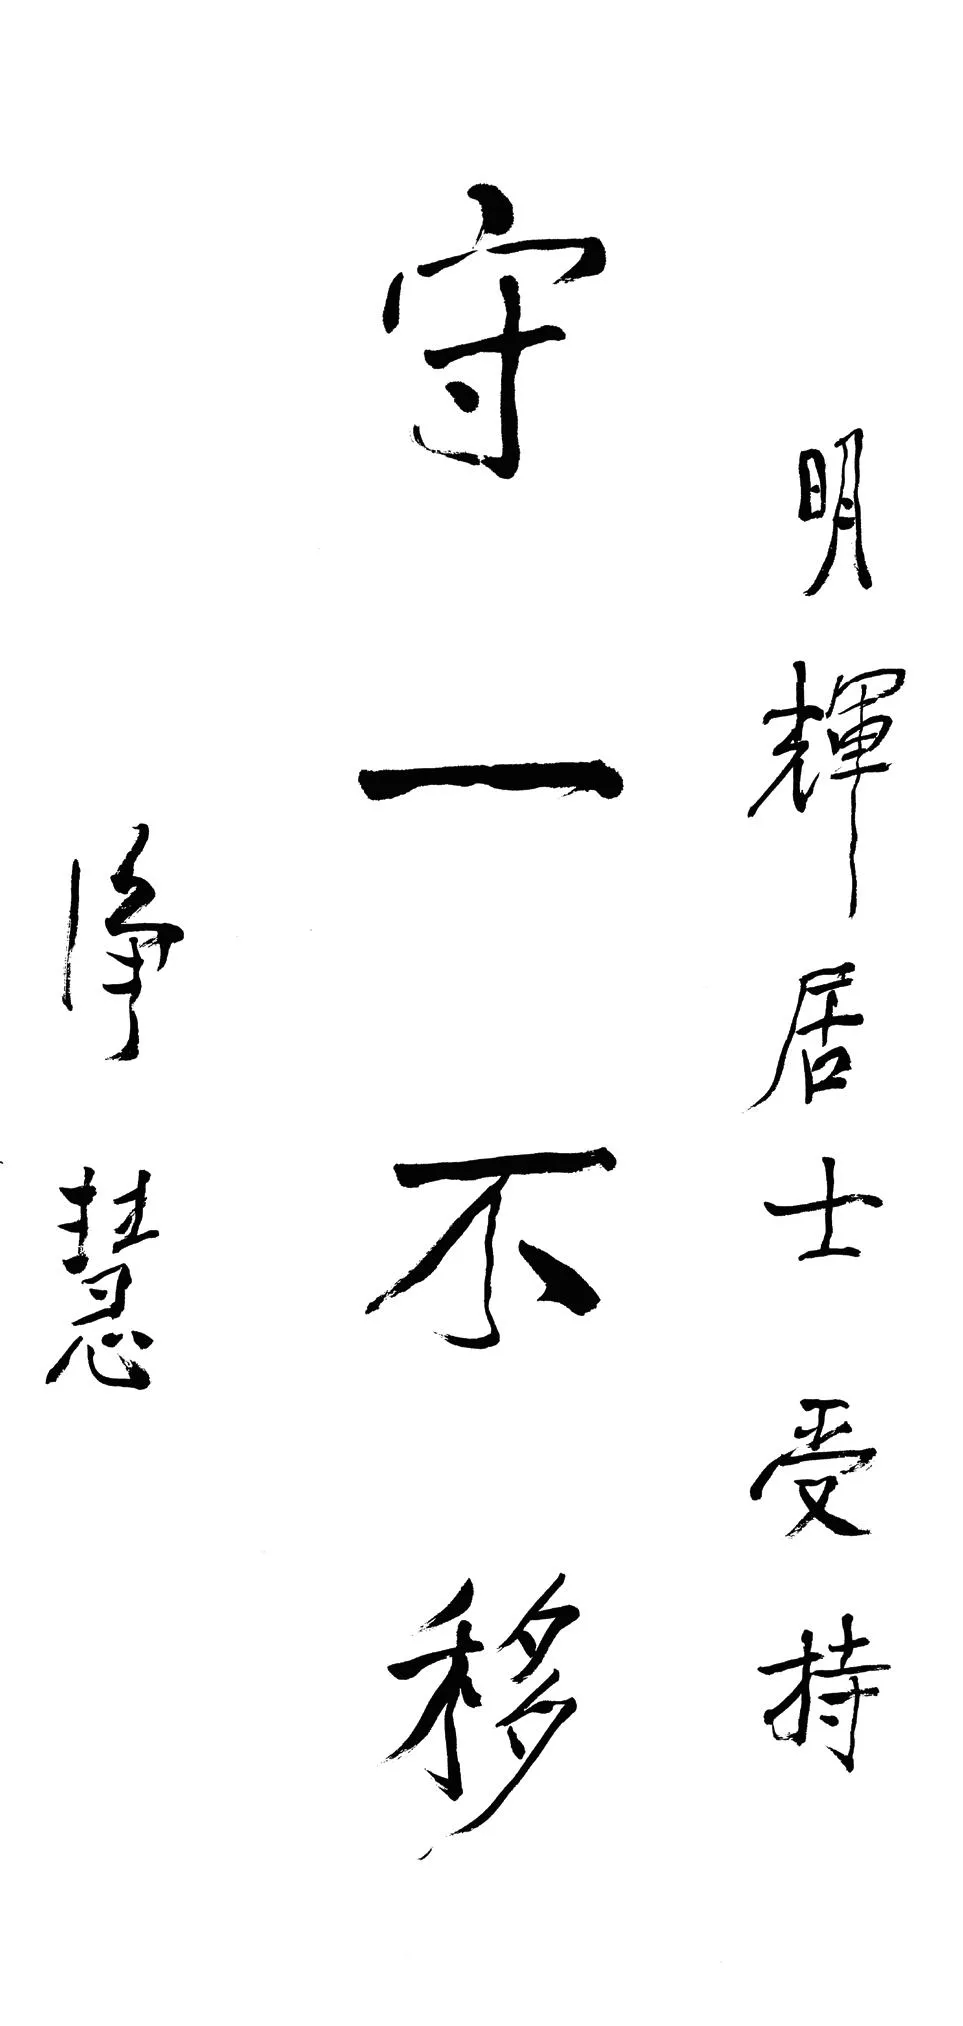 明輝居士受持
守一不移
淨慧